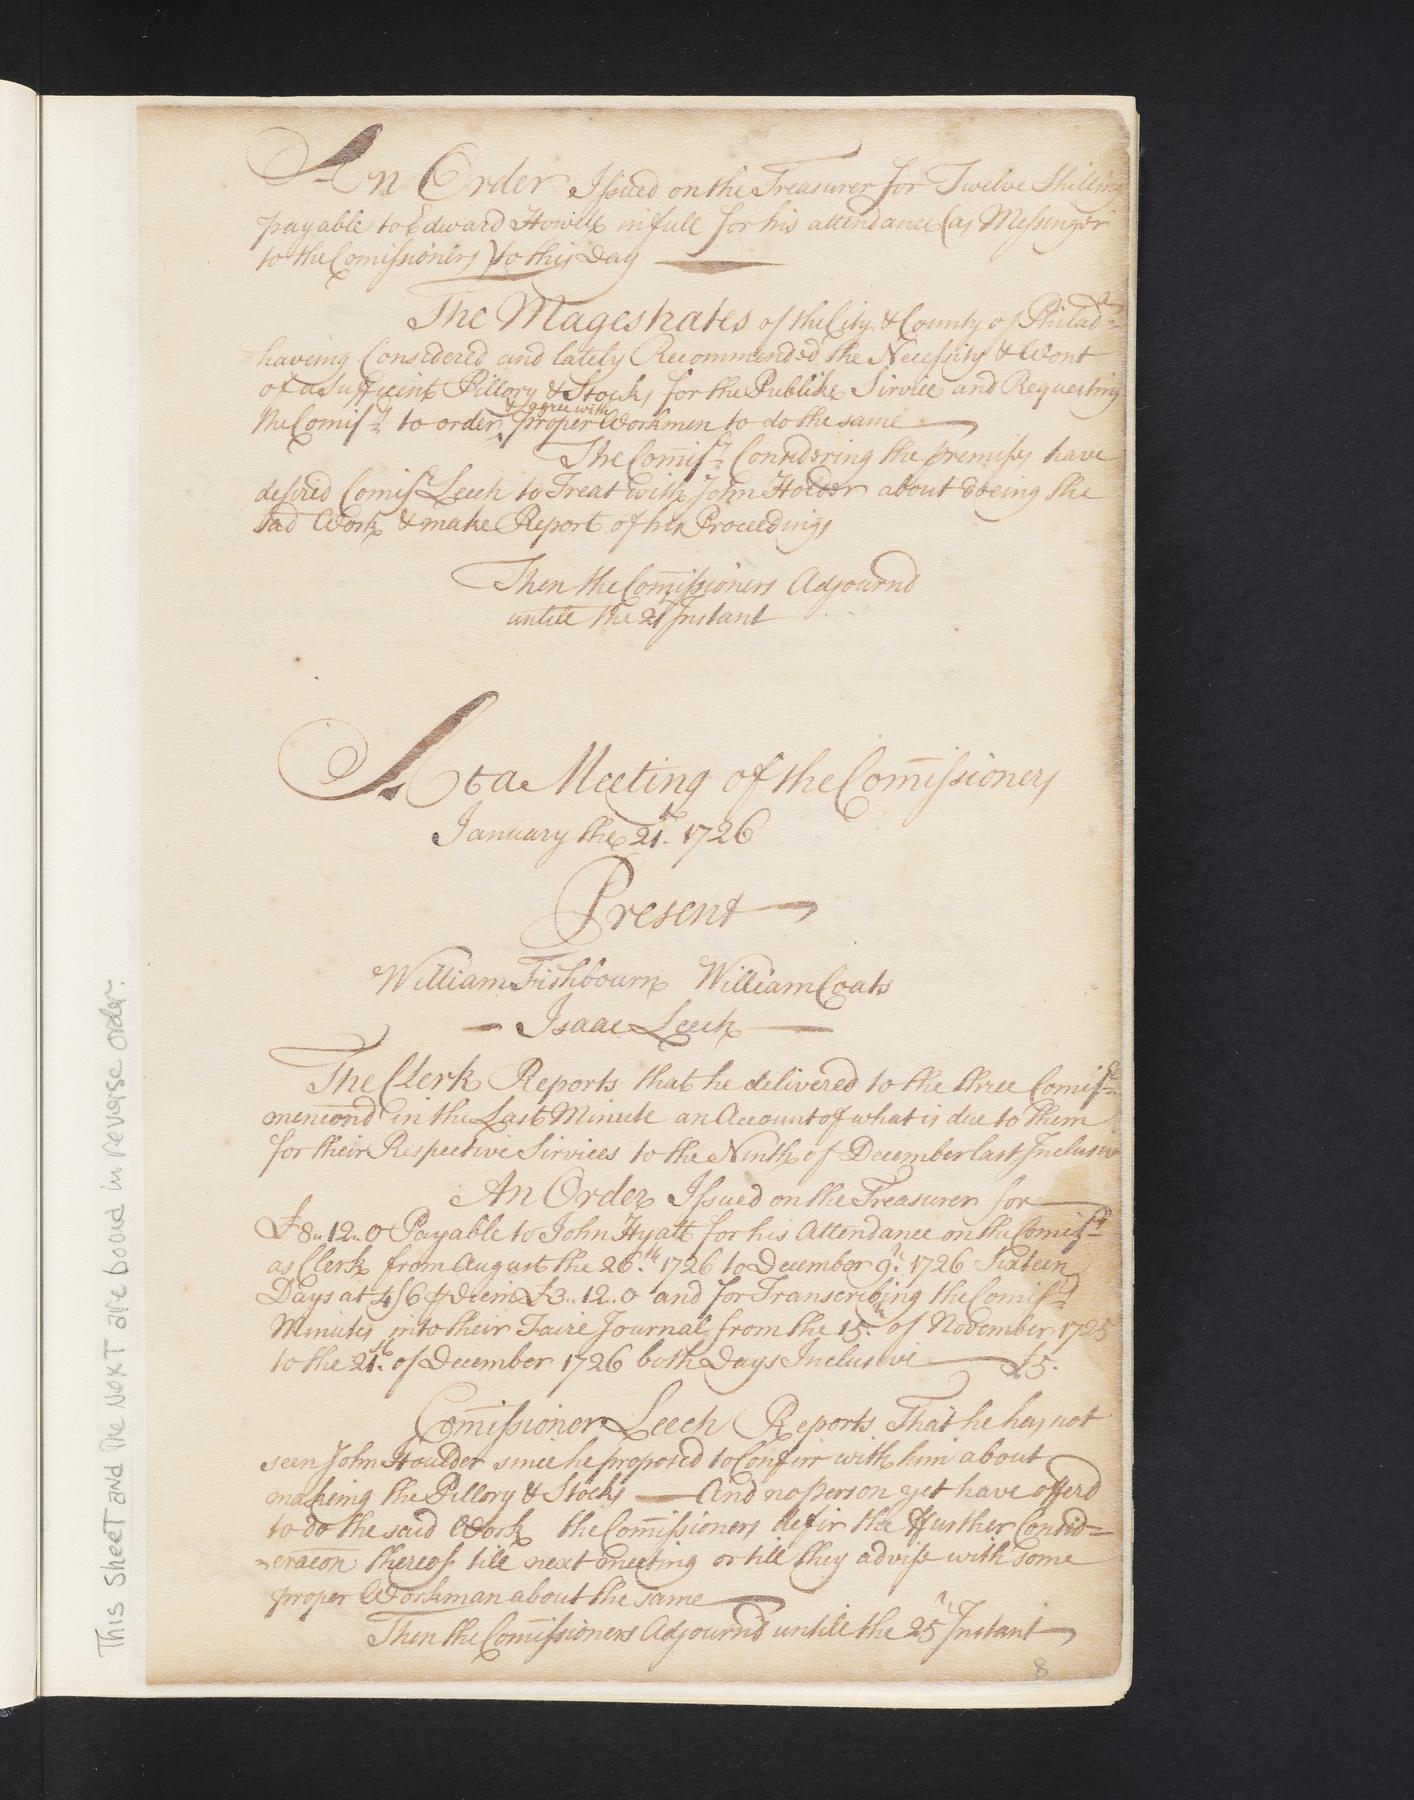 An Order Issued on the Treasurer for Twelve Shilling
payable to Edward Howell in full for his attendance (as Messinger
to the Com̄issioners) to this Day
The Magestrates of the City & County of Philad:ᵃ
haveing Considered and lately Recommended the Necessity & Wont
of a Suffucint Pillory & Stocks for the Publike Service and Requesting
& agree with
the Comisʳˢ to order, proper Workmen to do the same
The Com̄isʳˢ Considering the premises have
desired Comisʳ Leech to Treat with John Holder about doeing the
sad Work & make Report of his Proceedings
Then the Com̄issioners Adjournd
untill the 21 Instant
At a Meeting of the Com̄issioners
January the 21.ᵗ 1726
Present
William Fishbourn William Coats
Isaac Leech
The Clerk Reports that he delivered to the three Comisʳˢ
mencond in the Last Minute an Account of what is due to them
for their Respective Services to the Ninth of December last Inclusive
An Order Issued on the Treasurer for
£8„12„0 Payable to John Hyatt for his Attendance on the Comisʳˢ
as Clerk from August the 26.ᵗʰ 1726 to December 9.ʰ 1726 Sixteen
Days at 4/6 ⅌ Diem £3„12„0 and for Transcribing the Comisʳˢ
Minutes into their Faire Journal from the 15.ᵗʰ of November 1725
to the 21.ᵗʰ of December 1726 both Days Inclusive £5.
Com̄issioner Leech Reports That he has not
seen John Houlder since he proposed to Confirr with him about
makeing the Pillory & Stocks — And no person yet have offerd
to do the said Work the Com̄issioners defir the ffurther Consid=
=eracon thereof till next meeting or till they advise with some
proper Workman about the same
Then the Com̄issioners Adjournd untill the 25ʰ Instant
8
This sheet and the next are bound in reverse order.